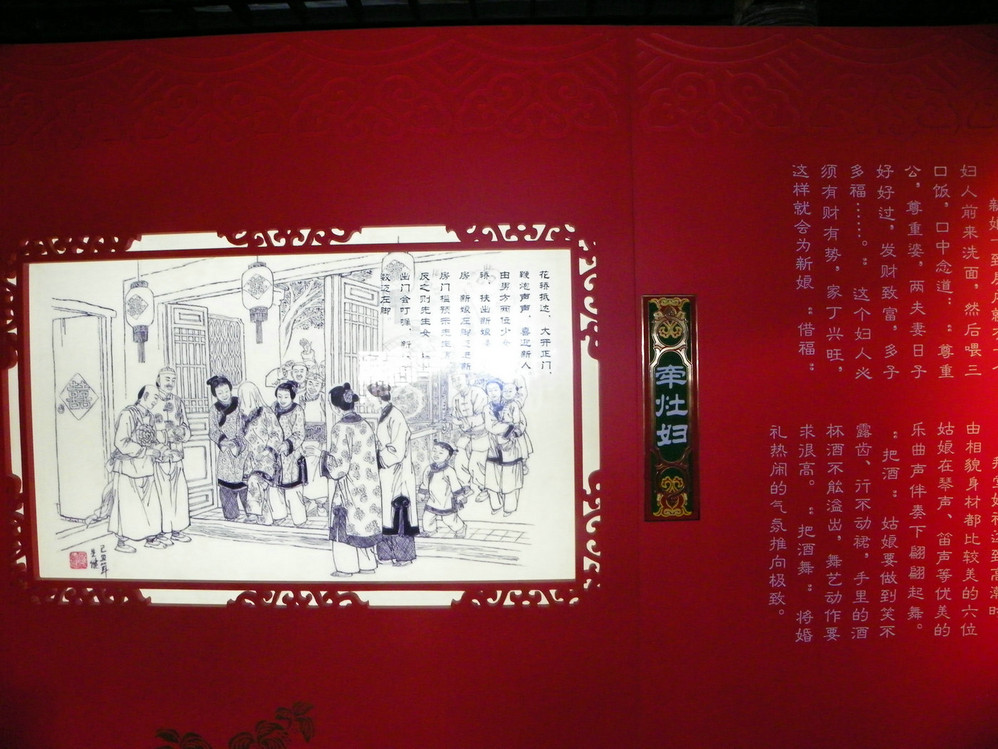 妇人前来洗面，然后喂三
口饭，口中念道：“尊重
公，尊重婆，两夫妻日子
好好过，发财致富，多子
多福……。”这个妇人必
须有财有势，家丁兴旺，
这样就会为新娘“借福”
由相貌身材都比较美的六位
姑娘在琴声、笛声等优美的
乐曲声伴奏下翩翩起舞。
“把酒”姑娘要做到笑不
露齿、行不动裙，手里的酒
杯酒不能溢出，舞艺动作要
求很高。“把酒舞”将婚
礼热闹的气氛推向极致。
牵灶妇
花轿抵达，大开正门，
鞭炮声声，喜迎新人
由男方两位少
轿，扶出新娘
房，新娘左脚
房门槛预示先生
反之则先生女
出门会打
故迈左脚
己丑年